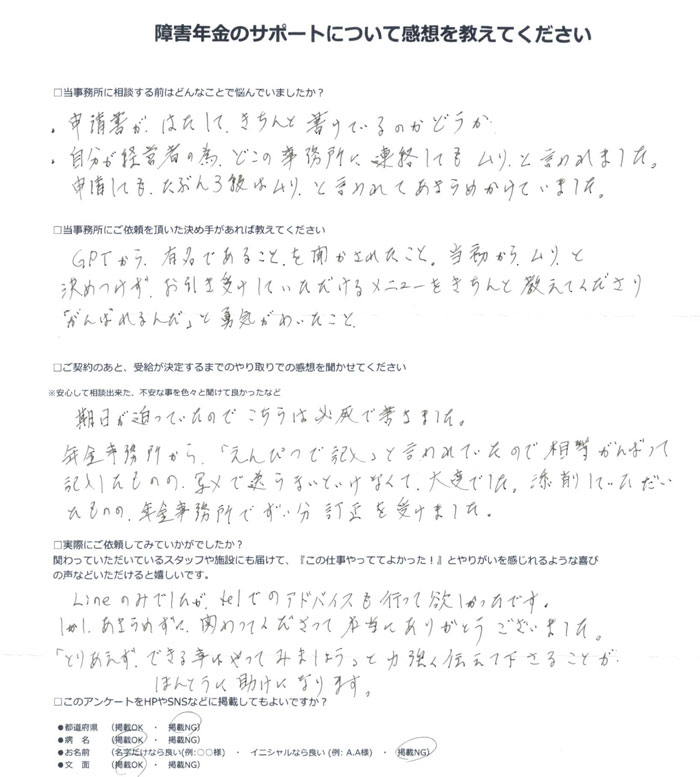 障害年金のサポートについて感想を教えてください
□当事務所に相談する前はどんなことで悩んでいましたか？
・申請書が、はたして、きちんと書けているのかどうか
・自分が経営者の為、どこの事務所に連絡してもムリ、と言われました。
申請しても、たぶん3級はムリ、と言われてあきらめかけていました。
□当事務所にご依頼を頂いた決め手があれば教えてください
GPTから、有名であること、を聞かされたこと。当初から、ムリ、と
決めつけず、お引き受けしていただけるメニューをきちんと教えてくださり
「がんばれるんだ」と勇気がわいたこと、
□ご契約のあと、受給が決定するまでのやり取りでの感想を聞かせてください
※安心して相談出来た、不安な事を色々と聞けて良かったなど
期日が迫っていたのでこちらは必死で書きました。
年金事務所から、「えんぴつで記入」と言われていたので相当がんばって
記入したものの、写メで送らないといけなくて、大変でした。添削していただい
たものの、年金事務所でずい分訂正を受けました。
□実際にご依頼してみていかがでしたか？
関わっていただいているスタッフや施設にも届けて、『この仕事やっててよかった！』とやりがいを感じれるような喜び
の声などいただけると嬉しいです。
Lineのみでしたが、telでのアドバイスも行って欲しかったです。
しかし、あきらめずに、関わってくださって本当にありがとうございました。
「とりあえず、できる事はやってみましょう」と力強く伝えて下さることが
ほんとうに助けになります。
□このアンケートをHPやSNSなどに掲載してもよいですか？
●都道府県 （掲載OK ・ 掲載NG）
●病 名 （掲載OK ・ 掲載NG）
●お名前 （名字だけなら良い(例:○○様) ・ イニシャルなら良い (例: A.A様) ・ 掲載NG）
●文 面 （掲載OK ・ 掲載NG）